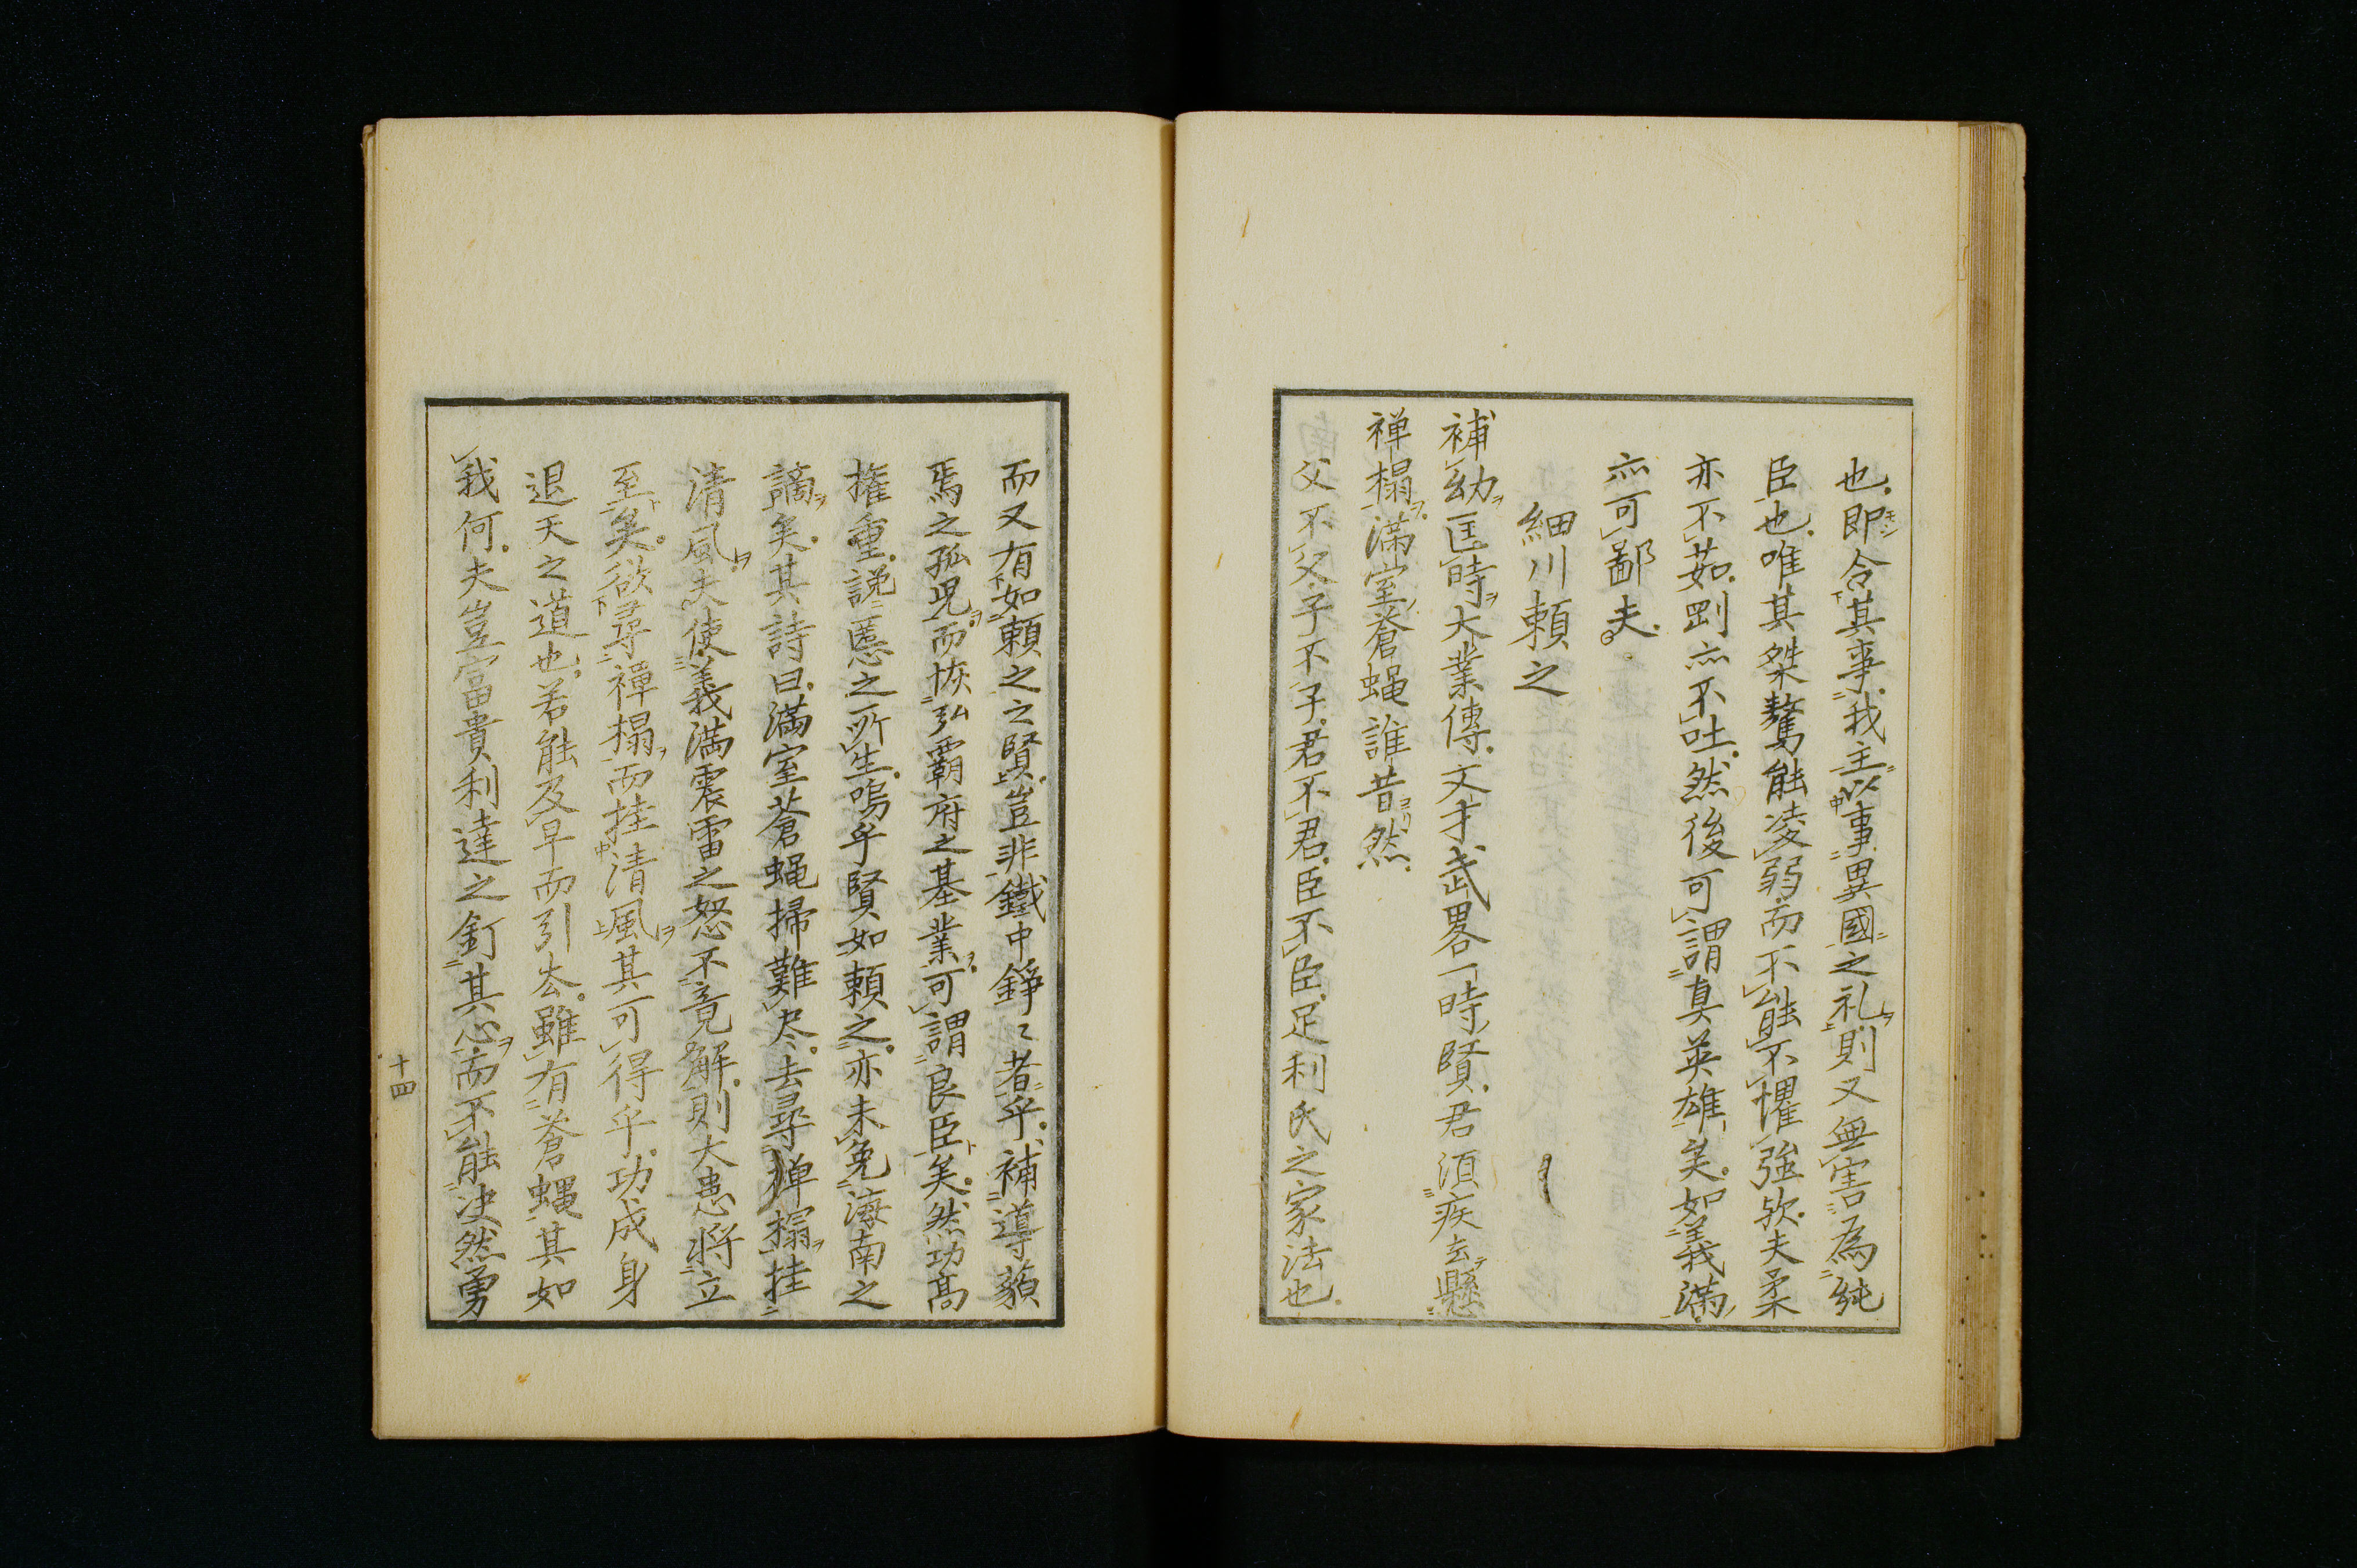 也即令其事我主以事異國之礼則又無害為純
臣也唯其桀驁能凌弱而不能不懼強欤夫柔
亦不茹剛亦不吐然後可謂真英雄矣如義満
亦可鄙夫
細川頼之
補幼匡時大業傳文才武畧一時賢君須疾去懸
禅榻満室蒼蝿誰昔然
父不父子不子君不君臣不臣足利氏之家法也
而又有如頼之之賢豈非鐵中錚々者乎補導藐
焉之孤児而恢弘覇府之基業可謂良臣矣然功高
権重讒慝之所生嗚乎賢如頼之亦未免海南之
謫矣其詩曰満室蒼蝿掃難尽去尋禅榻挂
清風夫使義満震雷之怒不竟解則大患将立
至矣欲尋禅榻而挂清風其可得乎功成身
退天之道也若能及早而引去雖有蒼蝿其如
我何夫豈富貴利達之釘其心而不能决然勇
十四